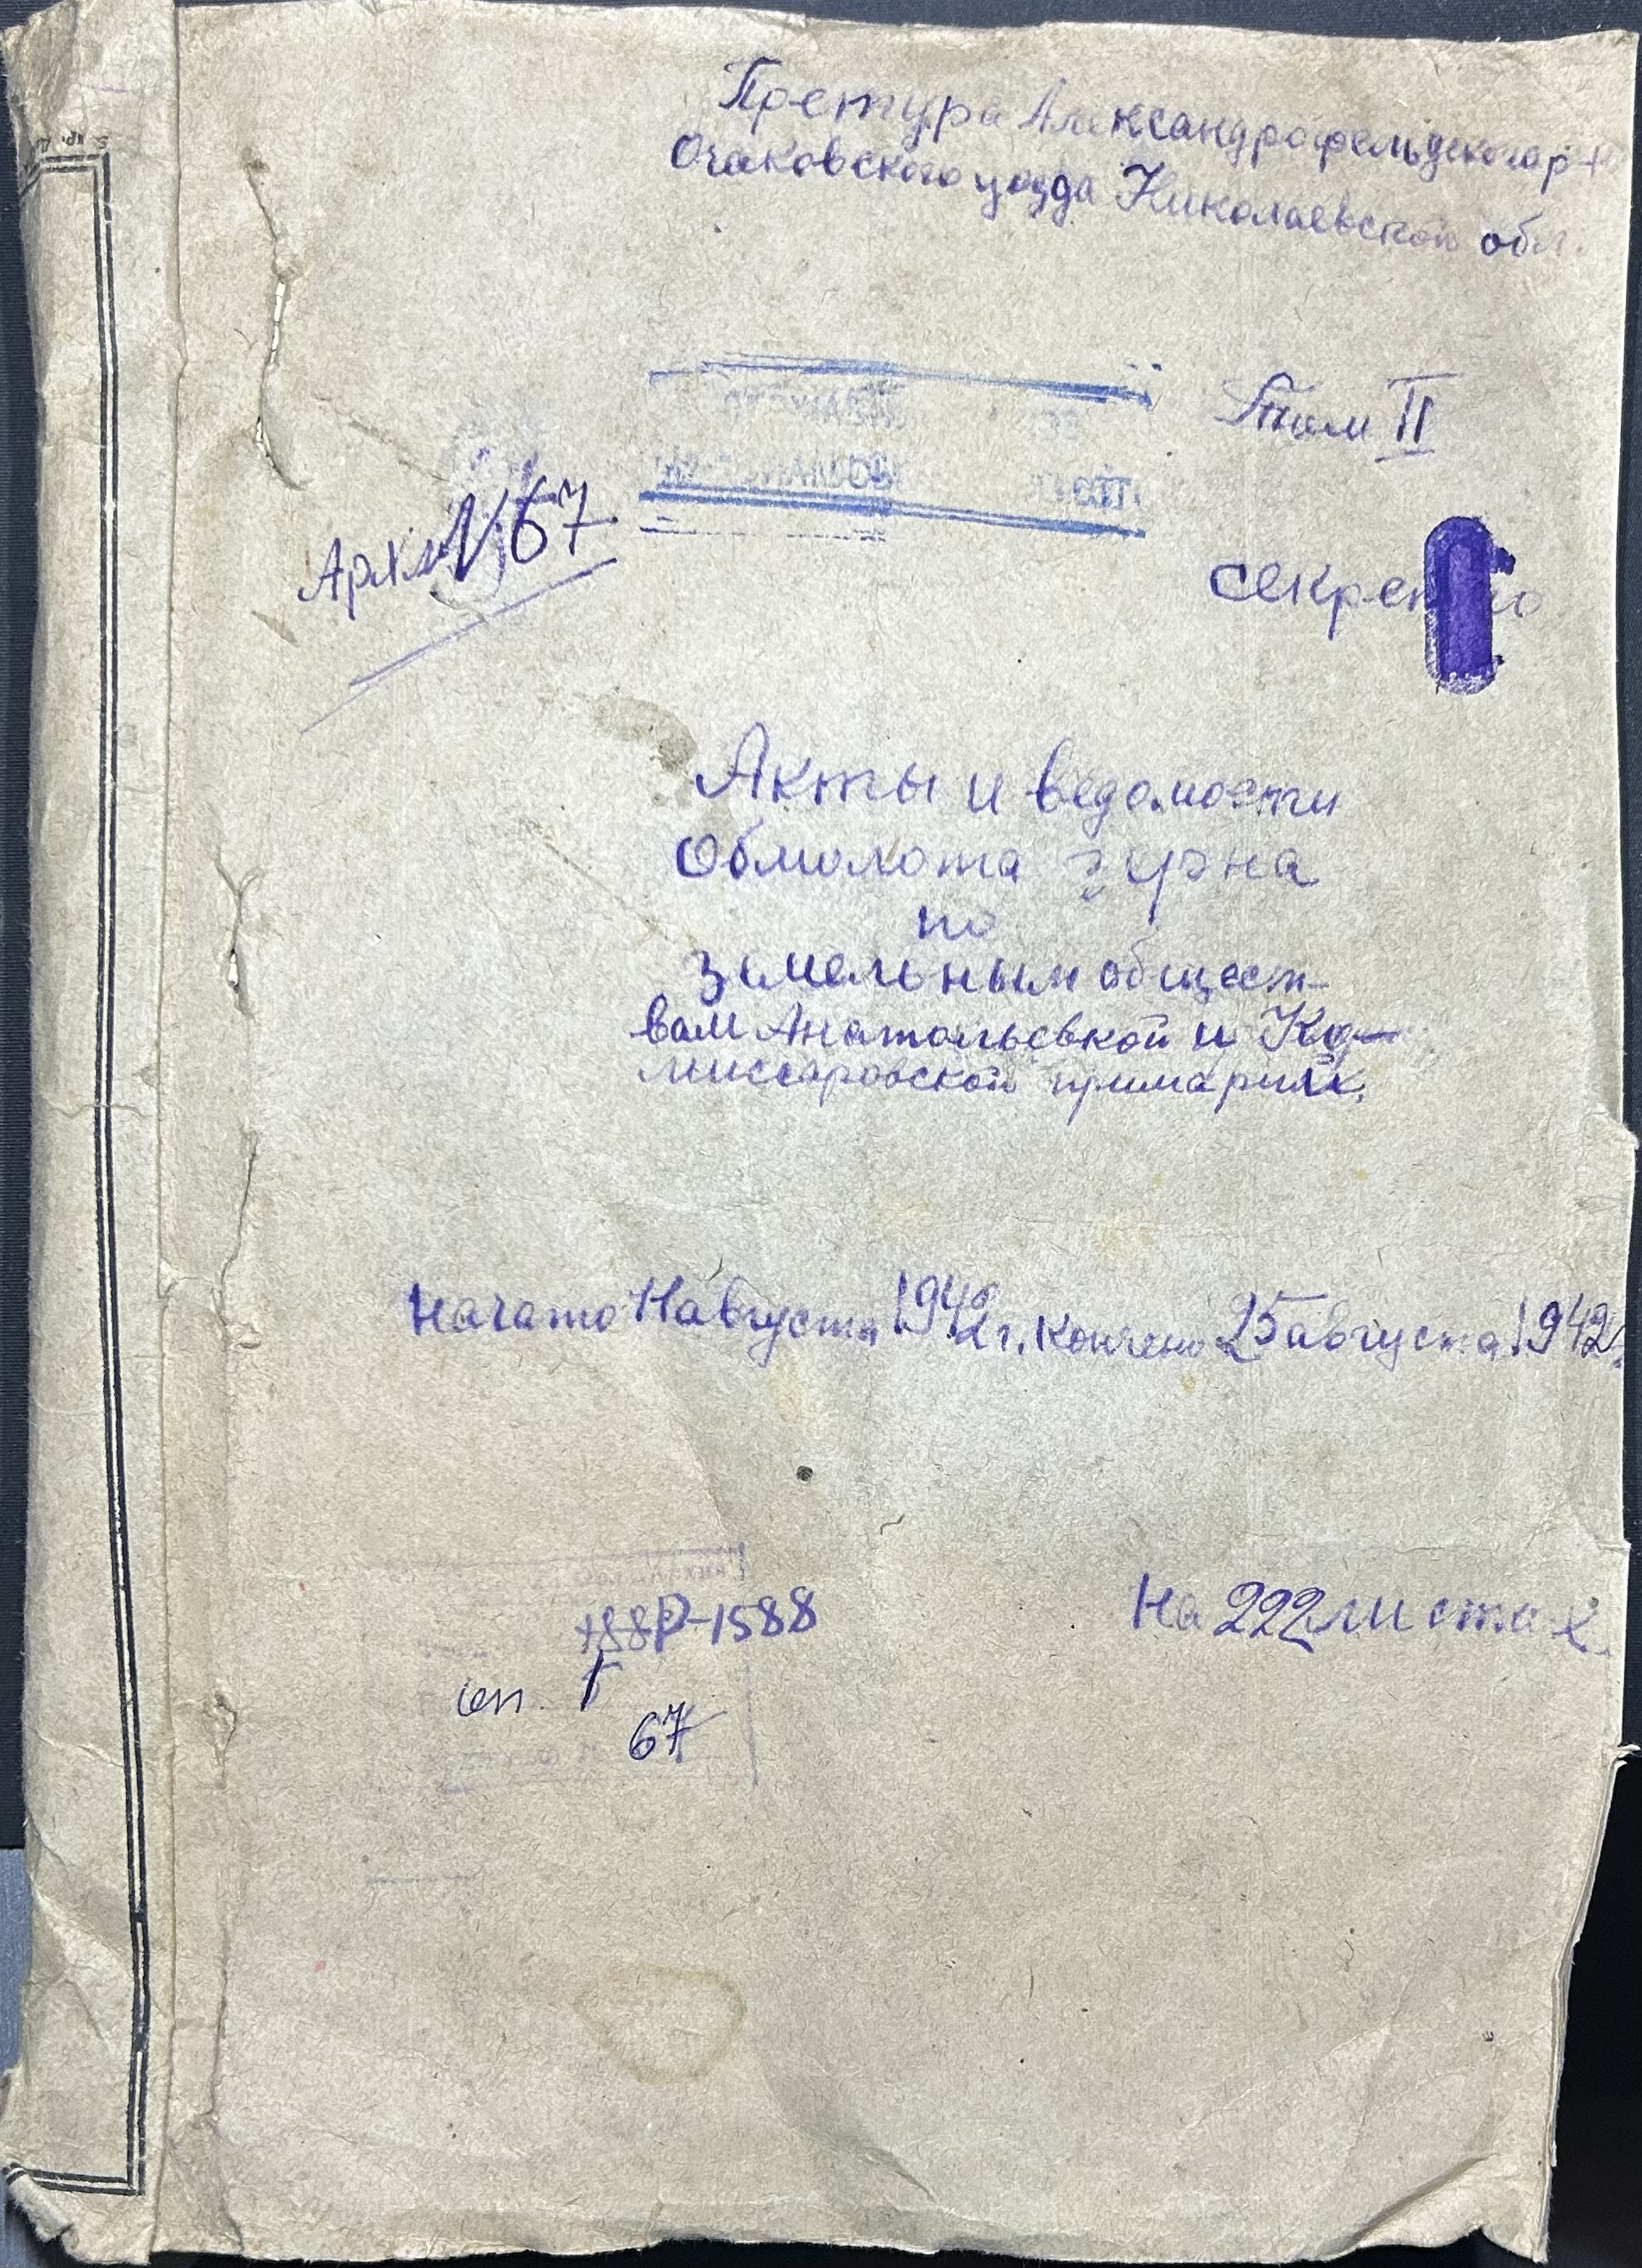 Претура Александрофельдского р-на
Очаковского уезда Николаевской обл.
Том II
Арх. № 67
секретно
Акты и ведомости
обмолота зерна
по
земельным общест-
вам Анатольевкой и Ко-
миссаровской примарий.
Начато 11 августа 1942 г. Кончено 25 августа 1942 г.
Р-1588
На 222 листах.
оп. 1
67